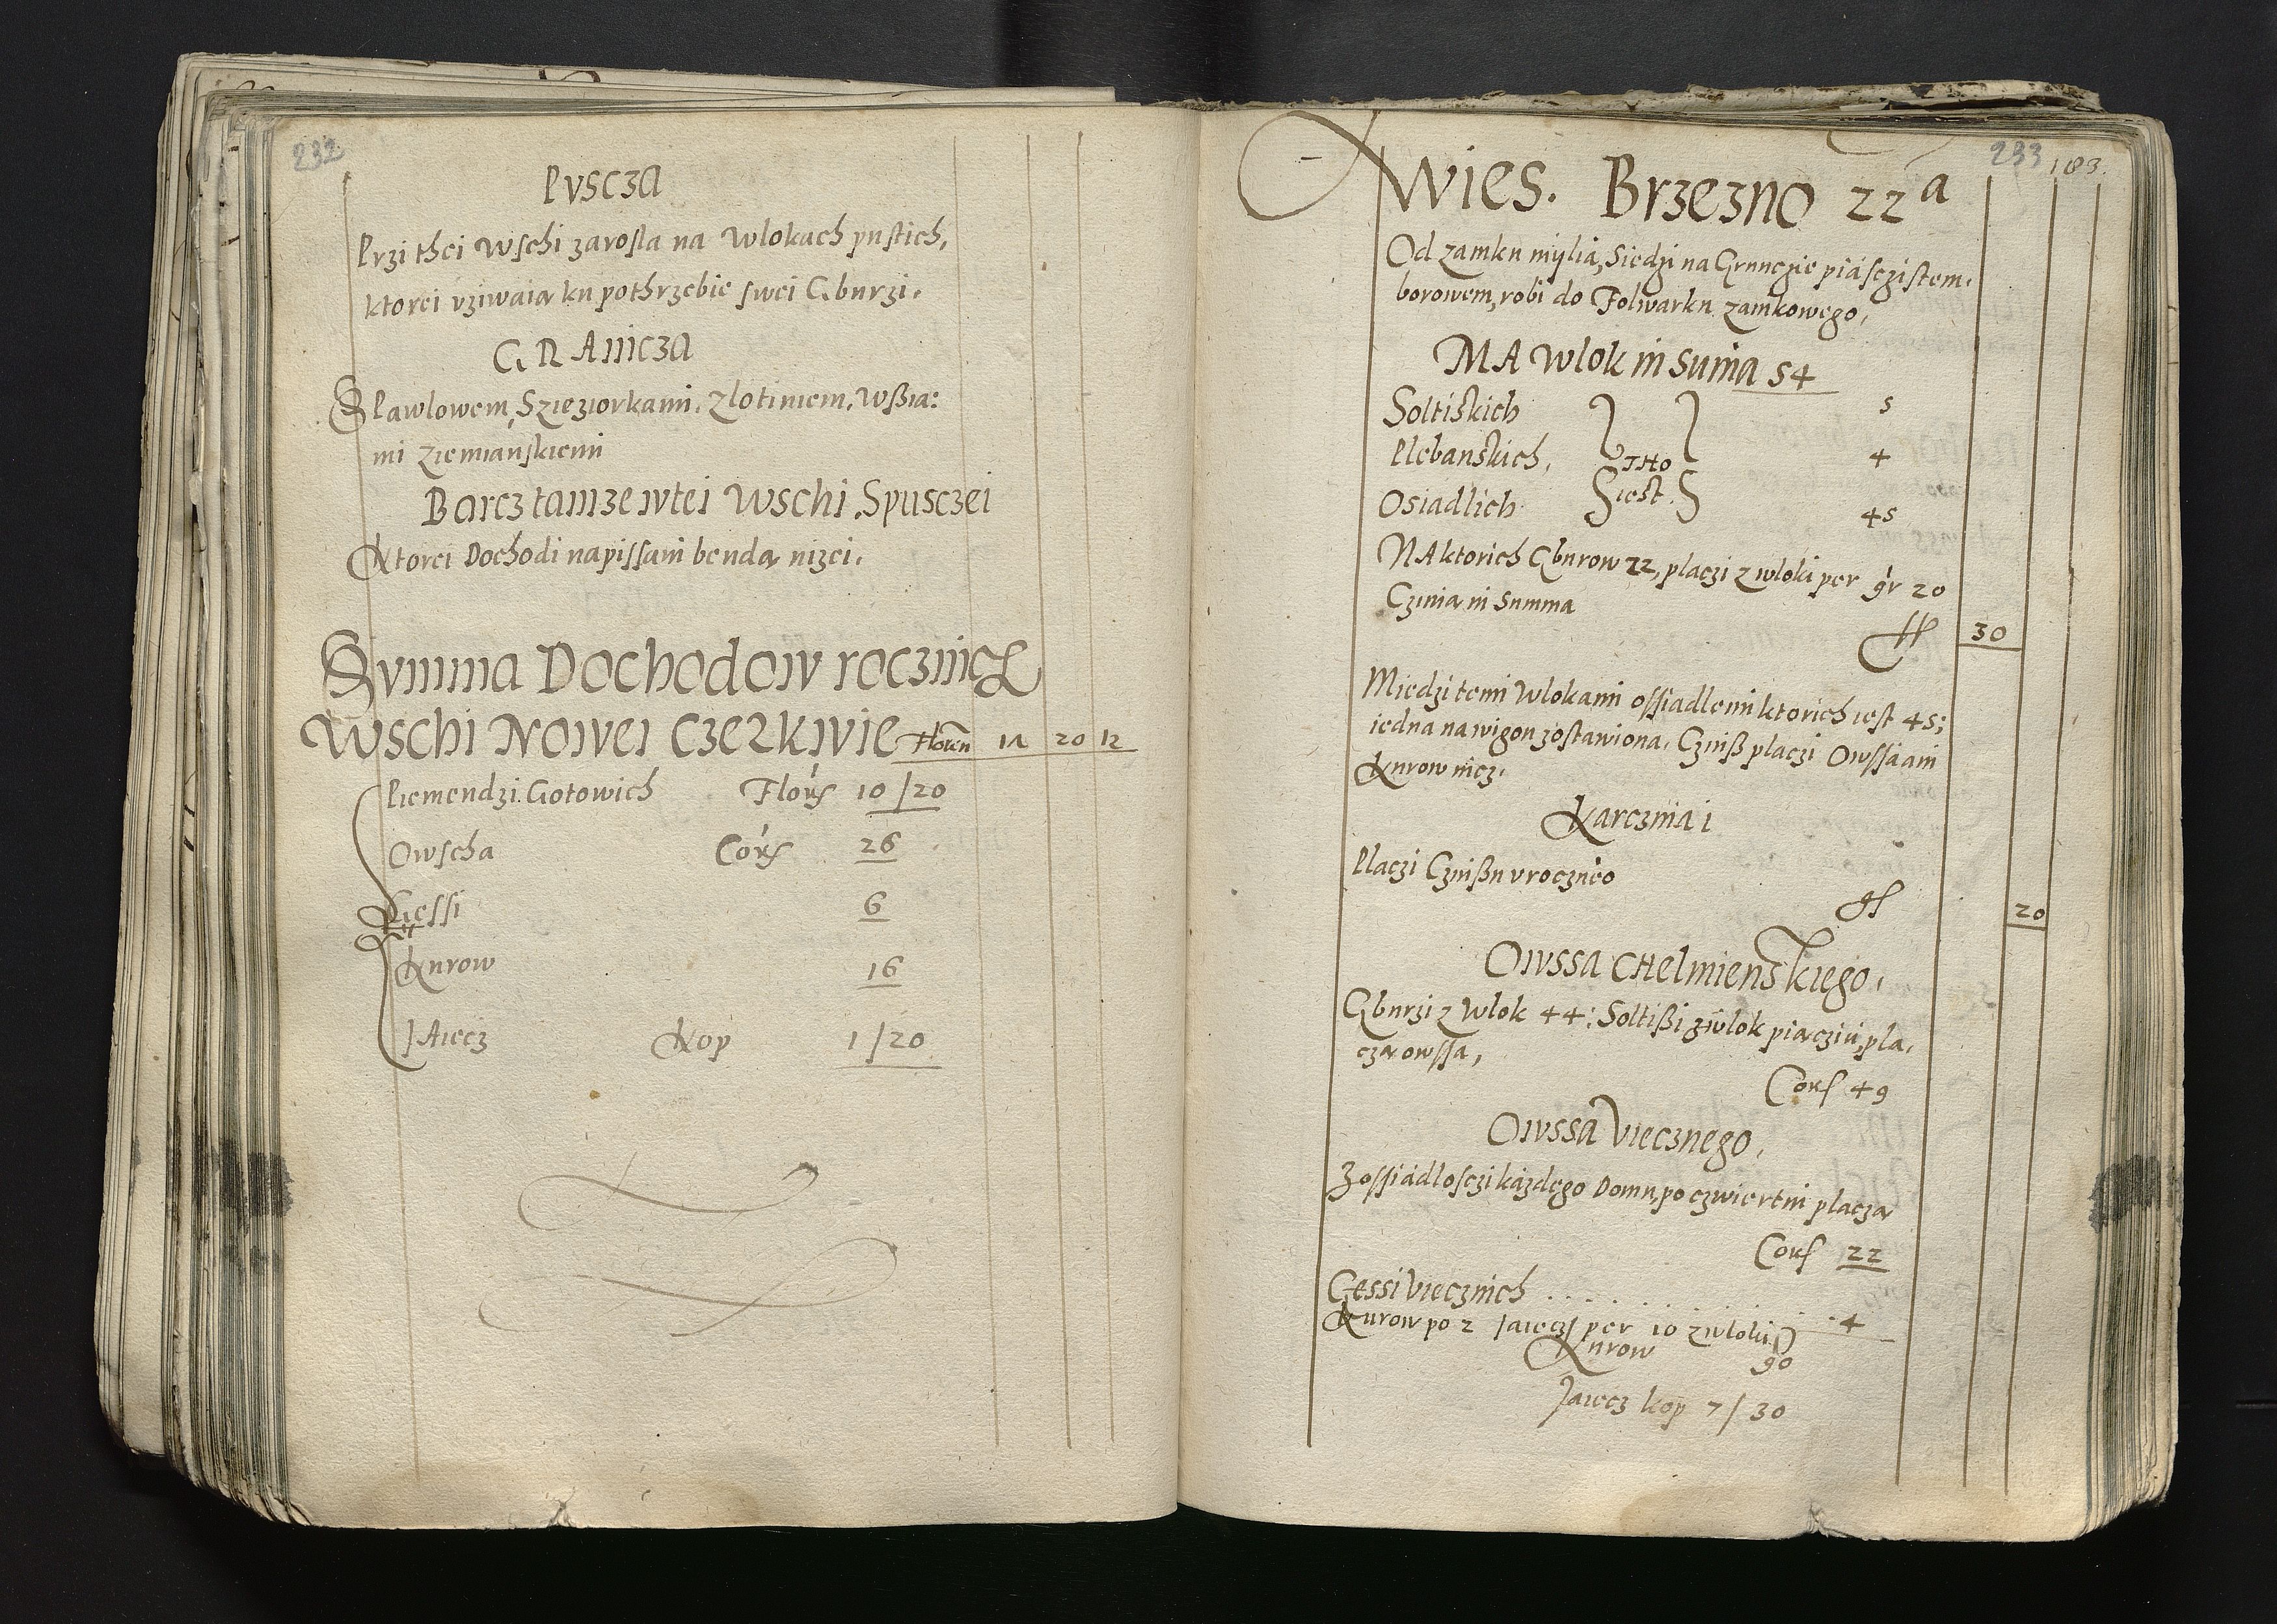 232
Puscza
Przi thei wschi zarosla na Wlokach pustich,
ktorei uziwaia ku pothrzebie swei Gburzi.
Granicza
S Pawlowem, S Zieziorkami, Zlotiniem, Wßia:
mi Ziemianskiemi
Barcz tamze wtei Wschi, S pusczei
Ktorei Dochodi napissani benda nizei.
Summa Dochodow rocznich
Wschi Nowei Czerkwie Floren 11 20 12
Piemendzi Gotowich Flors 10/20
Owscha Cors 26
Giessi 6
Kurow 16
Jaiecz Kop 1/20
233 183.
Wies. Brzezno 22a
Od zamku mylia, Siedzi na Grunczie piasczistem.
borowem, robi do Folwarku zamkowego,
MA Wlok in suma 54
Soltiskich 5
Plebanskich, 4
THO
iest
Osiadlich 45
NA ktorich Gburow 22, placzi z wloki per gr 20
Czinia in Summa
ff 30
Miedzi temi Wlokami ossiadlemi ktorich iest 45;
iedna na wigon zostawiona, Czinß placzi Owssa ani
Kurow nicz.
Karczma 1
Placzi Czinßu uroczneo
gf 20
Owssa CHelmienskiego,
Gburzi z Wlok 44: Soltißi z wlok piaczu, pla,
cza owssa,
Cors 49
Owssa Viecznego,
Z ossiadlosczi kazdego Domu, po czwiertni placza
Cors 22
Gessi Viecznich . . . . . . 4
Kurow po 2 Jaiecz per 10 z wloki
Kurow 90
Jaiecz kop 7/30